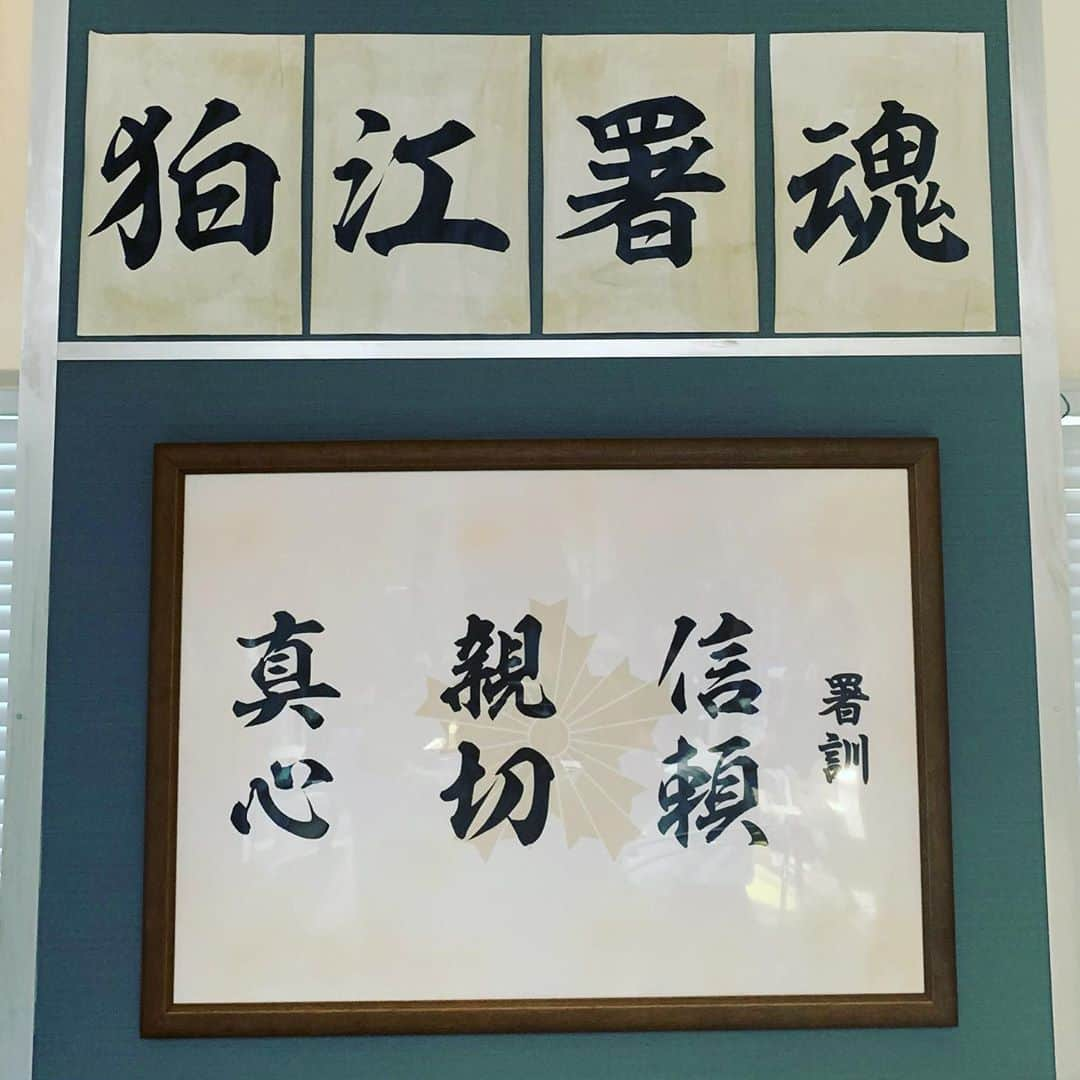 狛江署魂
署訓
信頼
親切
真心